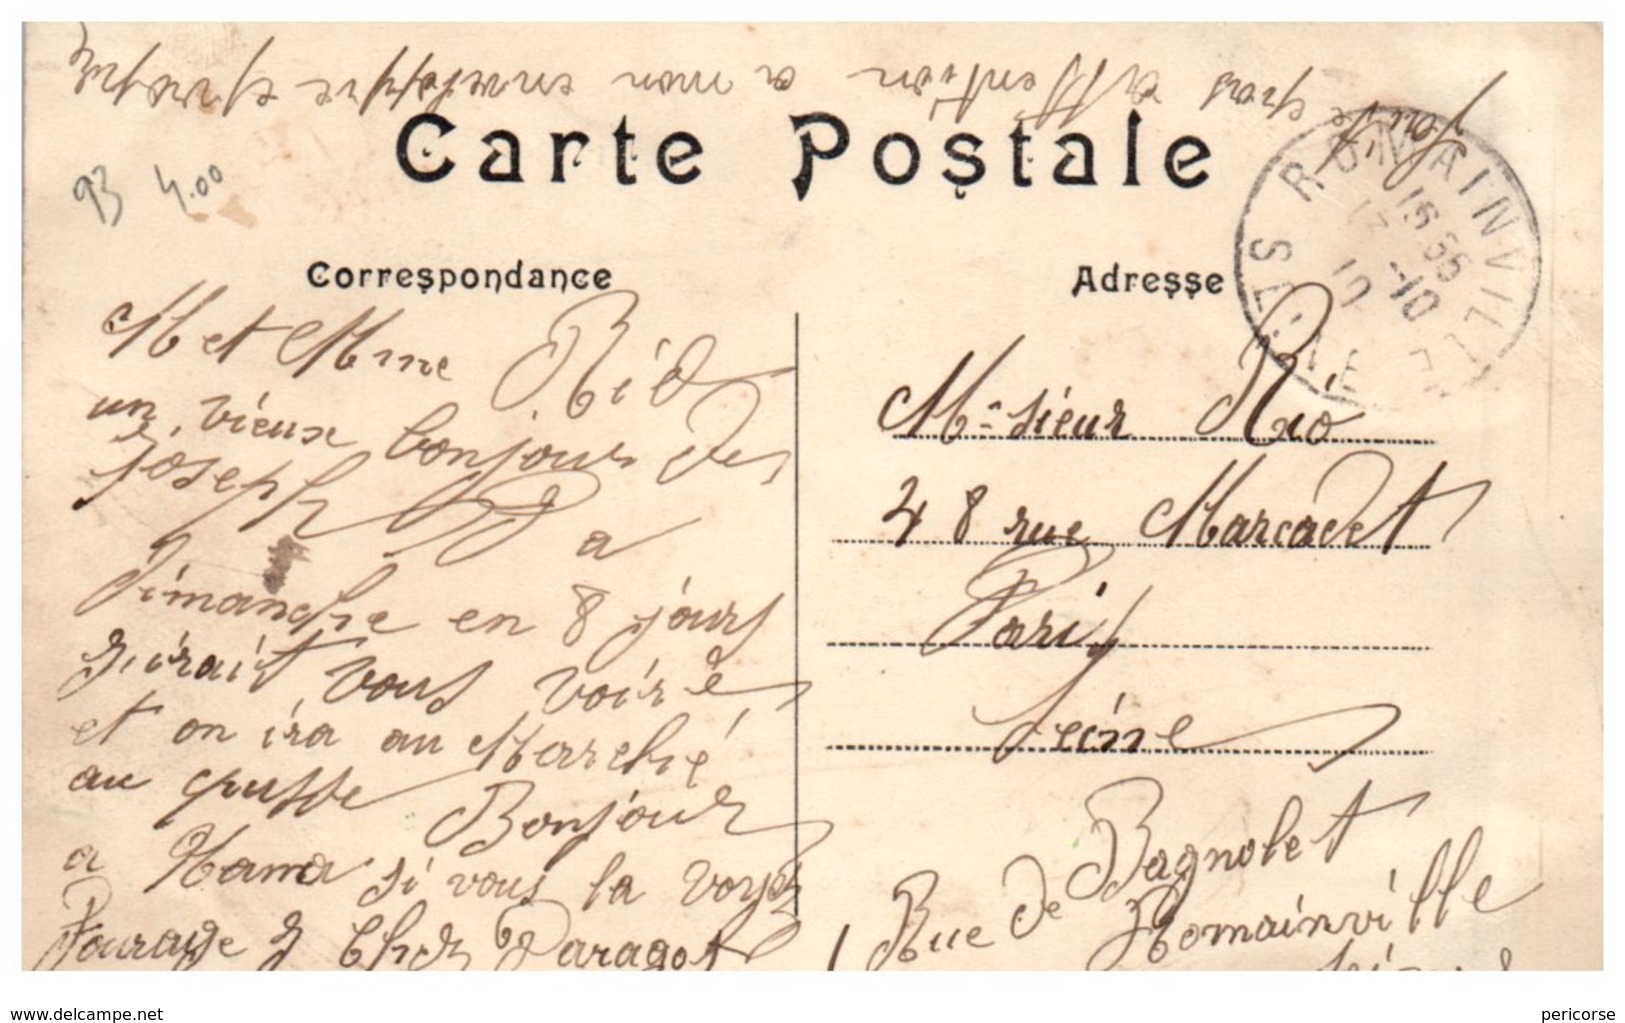 Faite pas attention a mon enveloppe
Carte Postale
93 4.00
ROMAINVILLE
SEINE
15 55
17 -10
10
Correspondance
Adresse
M et Mme Rio
un vieux bonjour des
joseph
a
Dimanche en 8 jours
j'irait vous voir
et on ira au Marché
au pusse Bonjour
a Mama si vous la voyez
Chez Paragot
Monsieur Rio
48 rue Marcadet
Paris
Seine
Rue de Bagnolet
Romainville
www.delcampe.net
pericorse